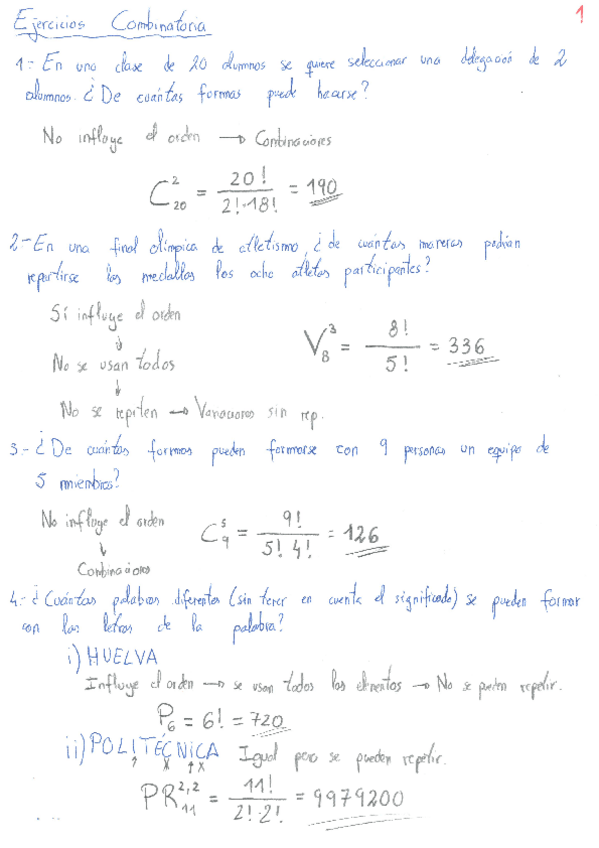 Ejercicios Combinatoria
1
1.- En una clase de 20 alumnos se quiere seleccionar una delegación de 2
alumnos. ¿De cuántas formas puede hacerse?
No influye el orden → Combinaciones
C₂₀² = 20! / 2!·18! = 190
2.- En una final olímpica de atletismo, ¿de cuántas maneras podrían
repartirse las medallas los ocho atletas participantes?
Sí influye el orden
↓
No se usan todos
↓
No se repiten → Variaciones sin rep.
V₈³ = 8! / 5! = 336
3.- ¿De cuántas formas pueden formarse con 9 personas un equipo de
5 miembros?
No influye el orden
↓
Combinaciones
C₉⁵ = 9! / 5! 4! = 126
4.- ¿Cuántas palabras diferentes (sin tener en cuenta el significado) se pueden formar
con las letras de la palabra?
i) HUELVA
Influye el orden → se usan todos los elementos → No se pueden repetir.
P₆ = 6! = 720
ii) POLITÉCNICA Igual pero se pueden repetir.
PR₁₁²,² = 11! / 2!·2! = 9979200